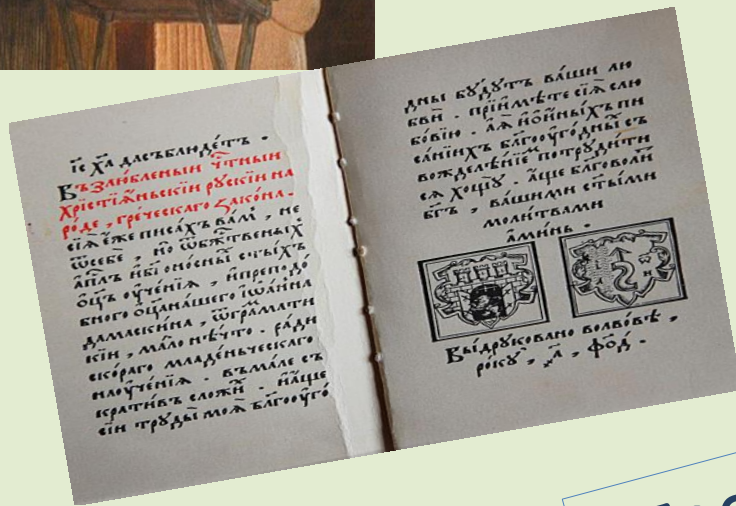 і҃с х҃а да съблюде́тъ .
Възлю́бленыи че́тныи
хрїстїа́ньскїи ру́скїи на
ро́де , гре́ческаго зако́на .
сїѧ̀ є҆́же писа́хъ ва́м̾ , не
ѿ себѐ , но̀ ѿ бж҃ественыхъ
а҆пл҃ъ и҆ бг҃оно́сныхъ ст҃ы́хъ
ѻ҆ц҃ъ ᲂу҆че́нїѧ , и҆ преподо́
бного ѻ҆ц҃а на́шего і҆ѡа́нна
дамаски́на , ѿ грама́ти
кїи , ма́ло не́что . ра́ди
ско́раго младе́ньческаго
наᲂуче́нїѧ . въма́ле съ
крати́въ сложи́х . и҆ а҆́ще
сїи труды̀ моѧ̀ бл҃гоᲂуго́
дны бу́дутъ ва́ши лю
бви . прїими́те сїѧ̀ с лю
бо́вїю . а҆ ѧ҆̀ и҆ ѡ҆ и҆ны́хъ пи
са́нїихъ бл҃гоᲂуго́дных съ
вожделе́нїем потруди́ти
сѧ хощу̀ . а҆́ще бл҃говоли́т
бг҃ъ , ва́шими ст҃ы́ми
моли́твами
а҆ми́нь .
Вы́друковано во лво́ве ,
ро́ку , ҂а҃ , ф҃о҃д .